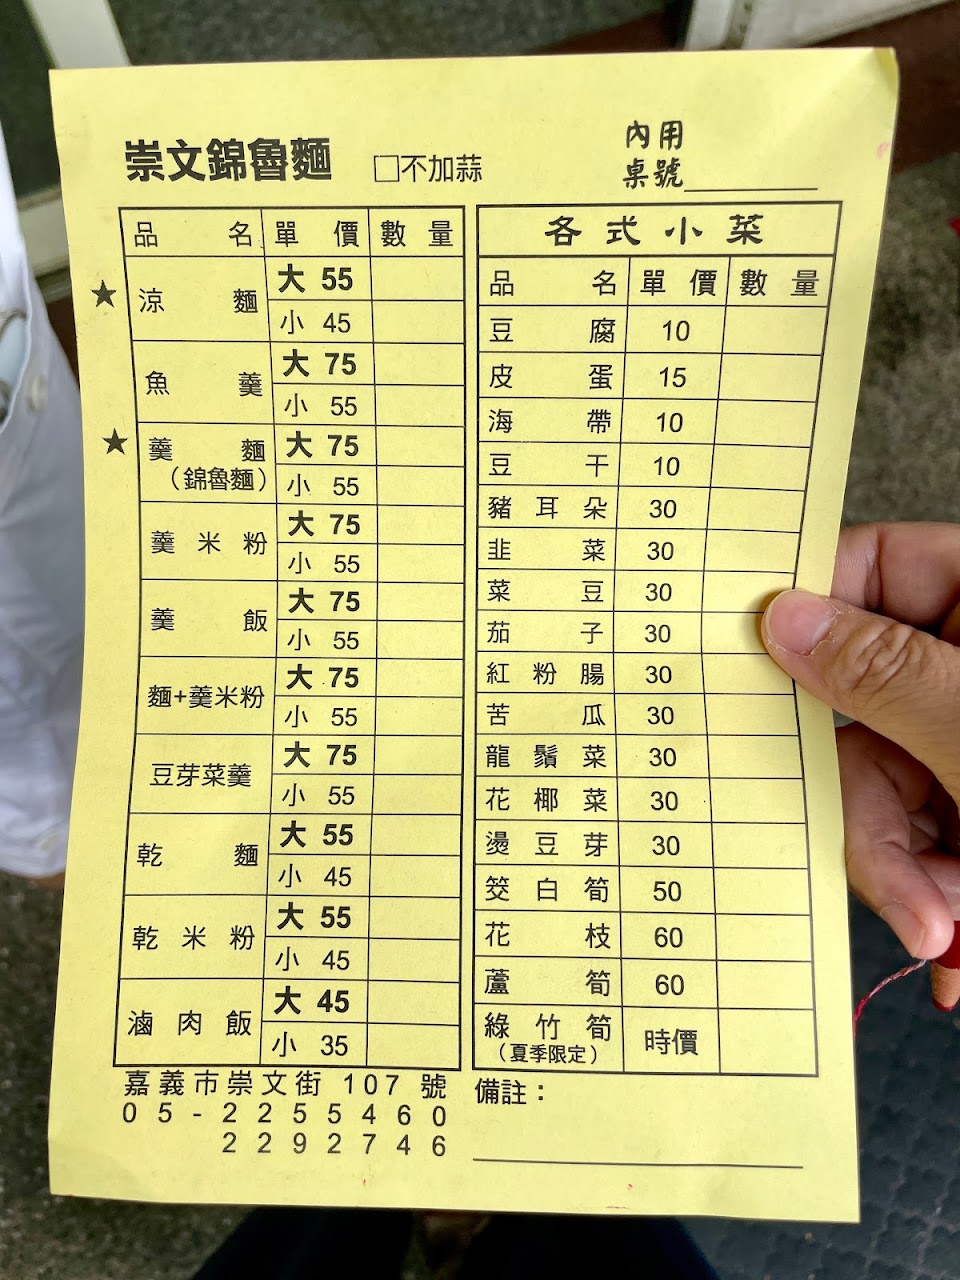 崇文錦魯麵 □不加蒜
內用
桌號
品名 單價 數量
★ 涼麵 大 55
小 45
魚羹 大 75
小 55
★ 羹麵 大 75
(錦魯麵) 小 55
羹米粉 大 75
小 55
羹飯 大 75
小 55
麵+羹米粉 大 75
小 55
豆芽菜羹 大 75
小 55
乾麵 大 55
小 45
乾米粉 大 55
小 45
滷肉飯 大 45
小 35
嘉義市崇文街 107 號
05-2255460
2292746
各式小菜
品名 單價 數量
豆腐 10
皮蛋 15
海帶 10
豆干 10
豬耳朵 30
韭菜 30
菜豆 30
茄子 30
紅粉腸 30
苦瓜 30
龍鬚菜 30
花椰菜 30
燙豆芽 30
筊白筍 50
花枝 60
蘆筍 60
綠竹筍 時價
(夏季限定)
備註: